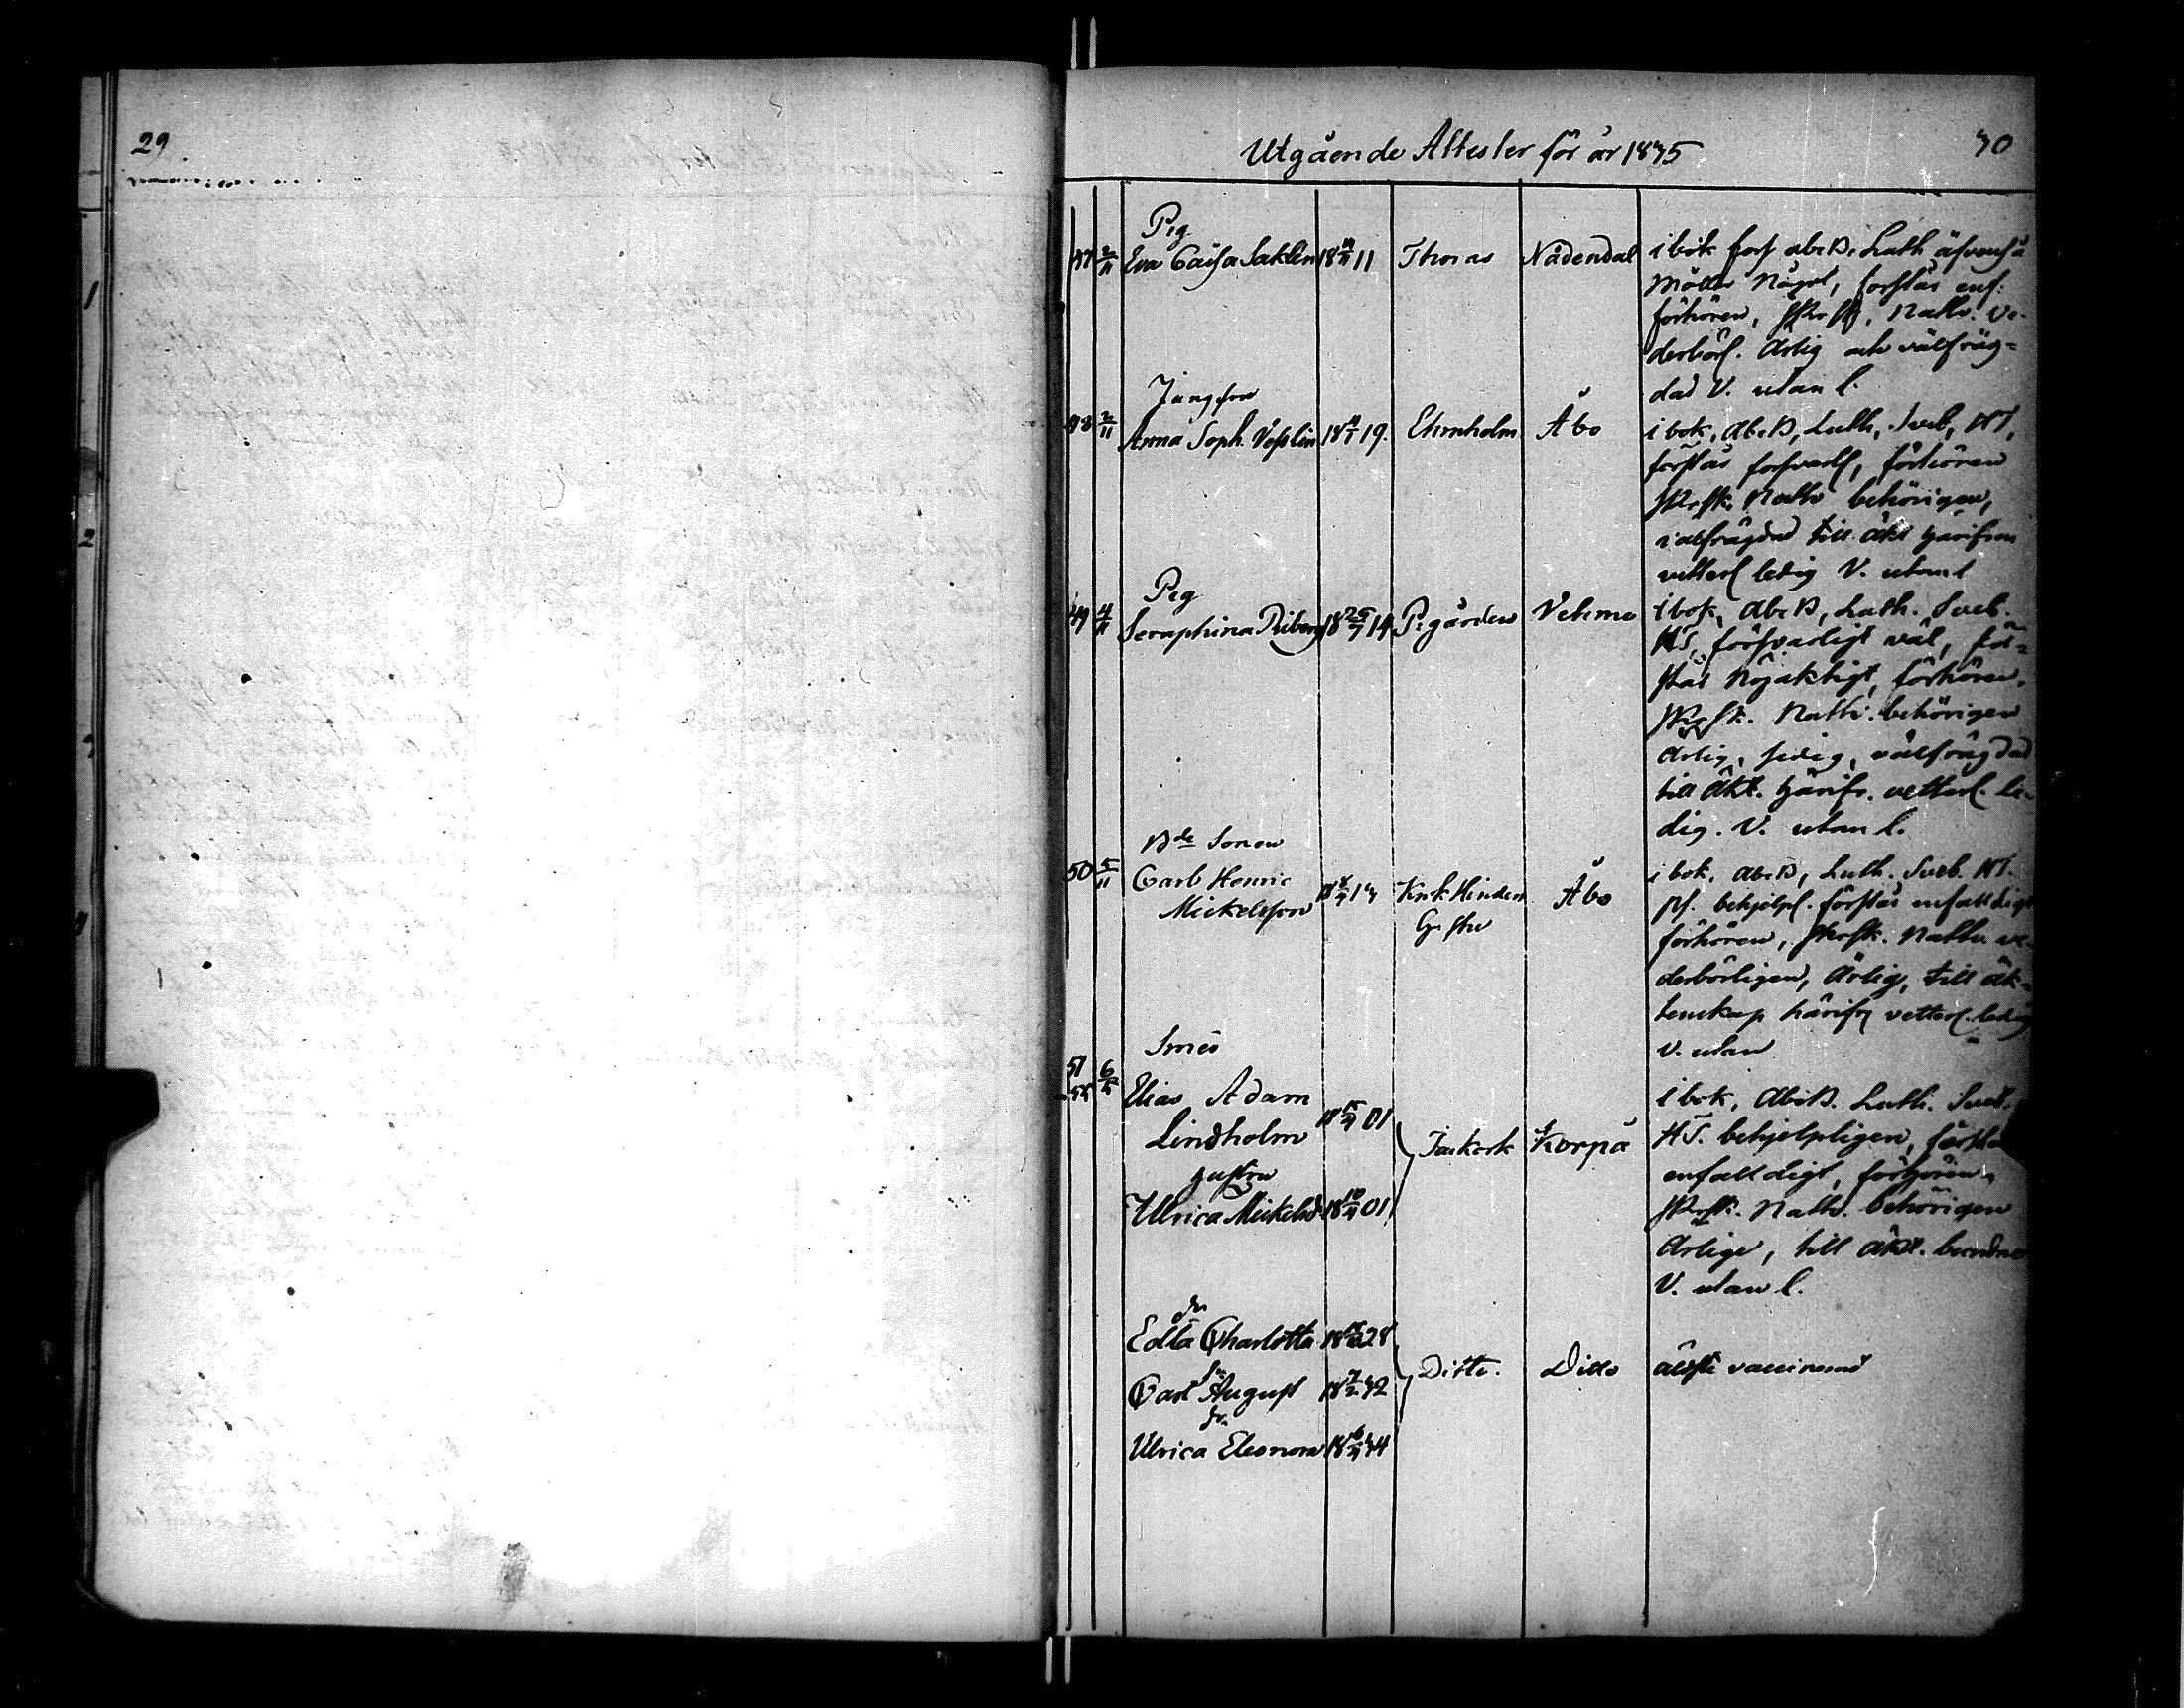 29
Utgående Attester för år 1835
30
47 2/11 Pig
Eva Caisa Saklin 18 11 Thomas Nådendal
i bok förs. abcB. Luth. äfvenså
möller något, förstår enf.
förhören, HHrsk. Nattv. ve-
derbörl. Ärlig och välfräg-
dad V. utan l.
48 2/11 Jungfru
Anna Soph. Vesslin 18 19. Ehrnholm Åbo
i bok, AbcB, Luth, Sveb, HT,
förstår försvarl, förhören
HHrsk. Nattv behörigen,
välfrägdad till äkt härifrån
vetterl ledig V. utan l
49 4/11 Pig
Seraphina Riberg 18 25/7 14 P:gården Vehmo
i bok, AbcB, Luth. Sveb.
HT, försvarligt väl, för-
står nöjaktigt, förhören,
HHrsk. Nattv. behörigen
Ärlig, sedig, välfrägdad
till äkt. härifr. vetterl. le-
dig. V. utan l.
50 5/11 Bde Sonen
Carl Henric
Mickelsson 18 13 Kirk Hinders
Åbo
i bok, AbcB, Luth. Sveb. HT.
ps. behjelpl. förstår enfaldigt
förhören, HHrsk. Nattv. ve-
derbörligen, Ärlig, till äk-
tenskap härifr vetterl. ledig
V. utan
51 6/11 Smed
Elias Adam
Lindholm 18 01 Korpo
hustru
Ulrica Mickelsd. 18 10 01
i bok, AbcB. Luth. Sveb.
HT. behjelpligen, förstå
enfaldigt, förhören,
HHrsk. Nattv. behörigen
Ärlige, till äkt. bundne
V. utan l.
dr
Edla Charlotta 18 28
sn
Carl August 18 7/2 32 Ditto. Ditto
dr
Ulrica Eleonora 18 34
vaccinerad